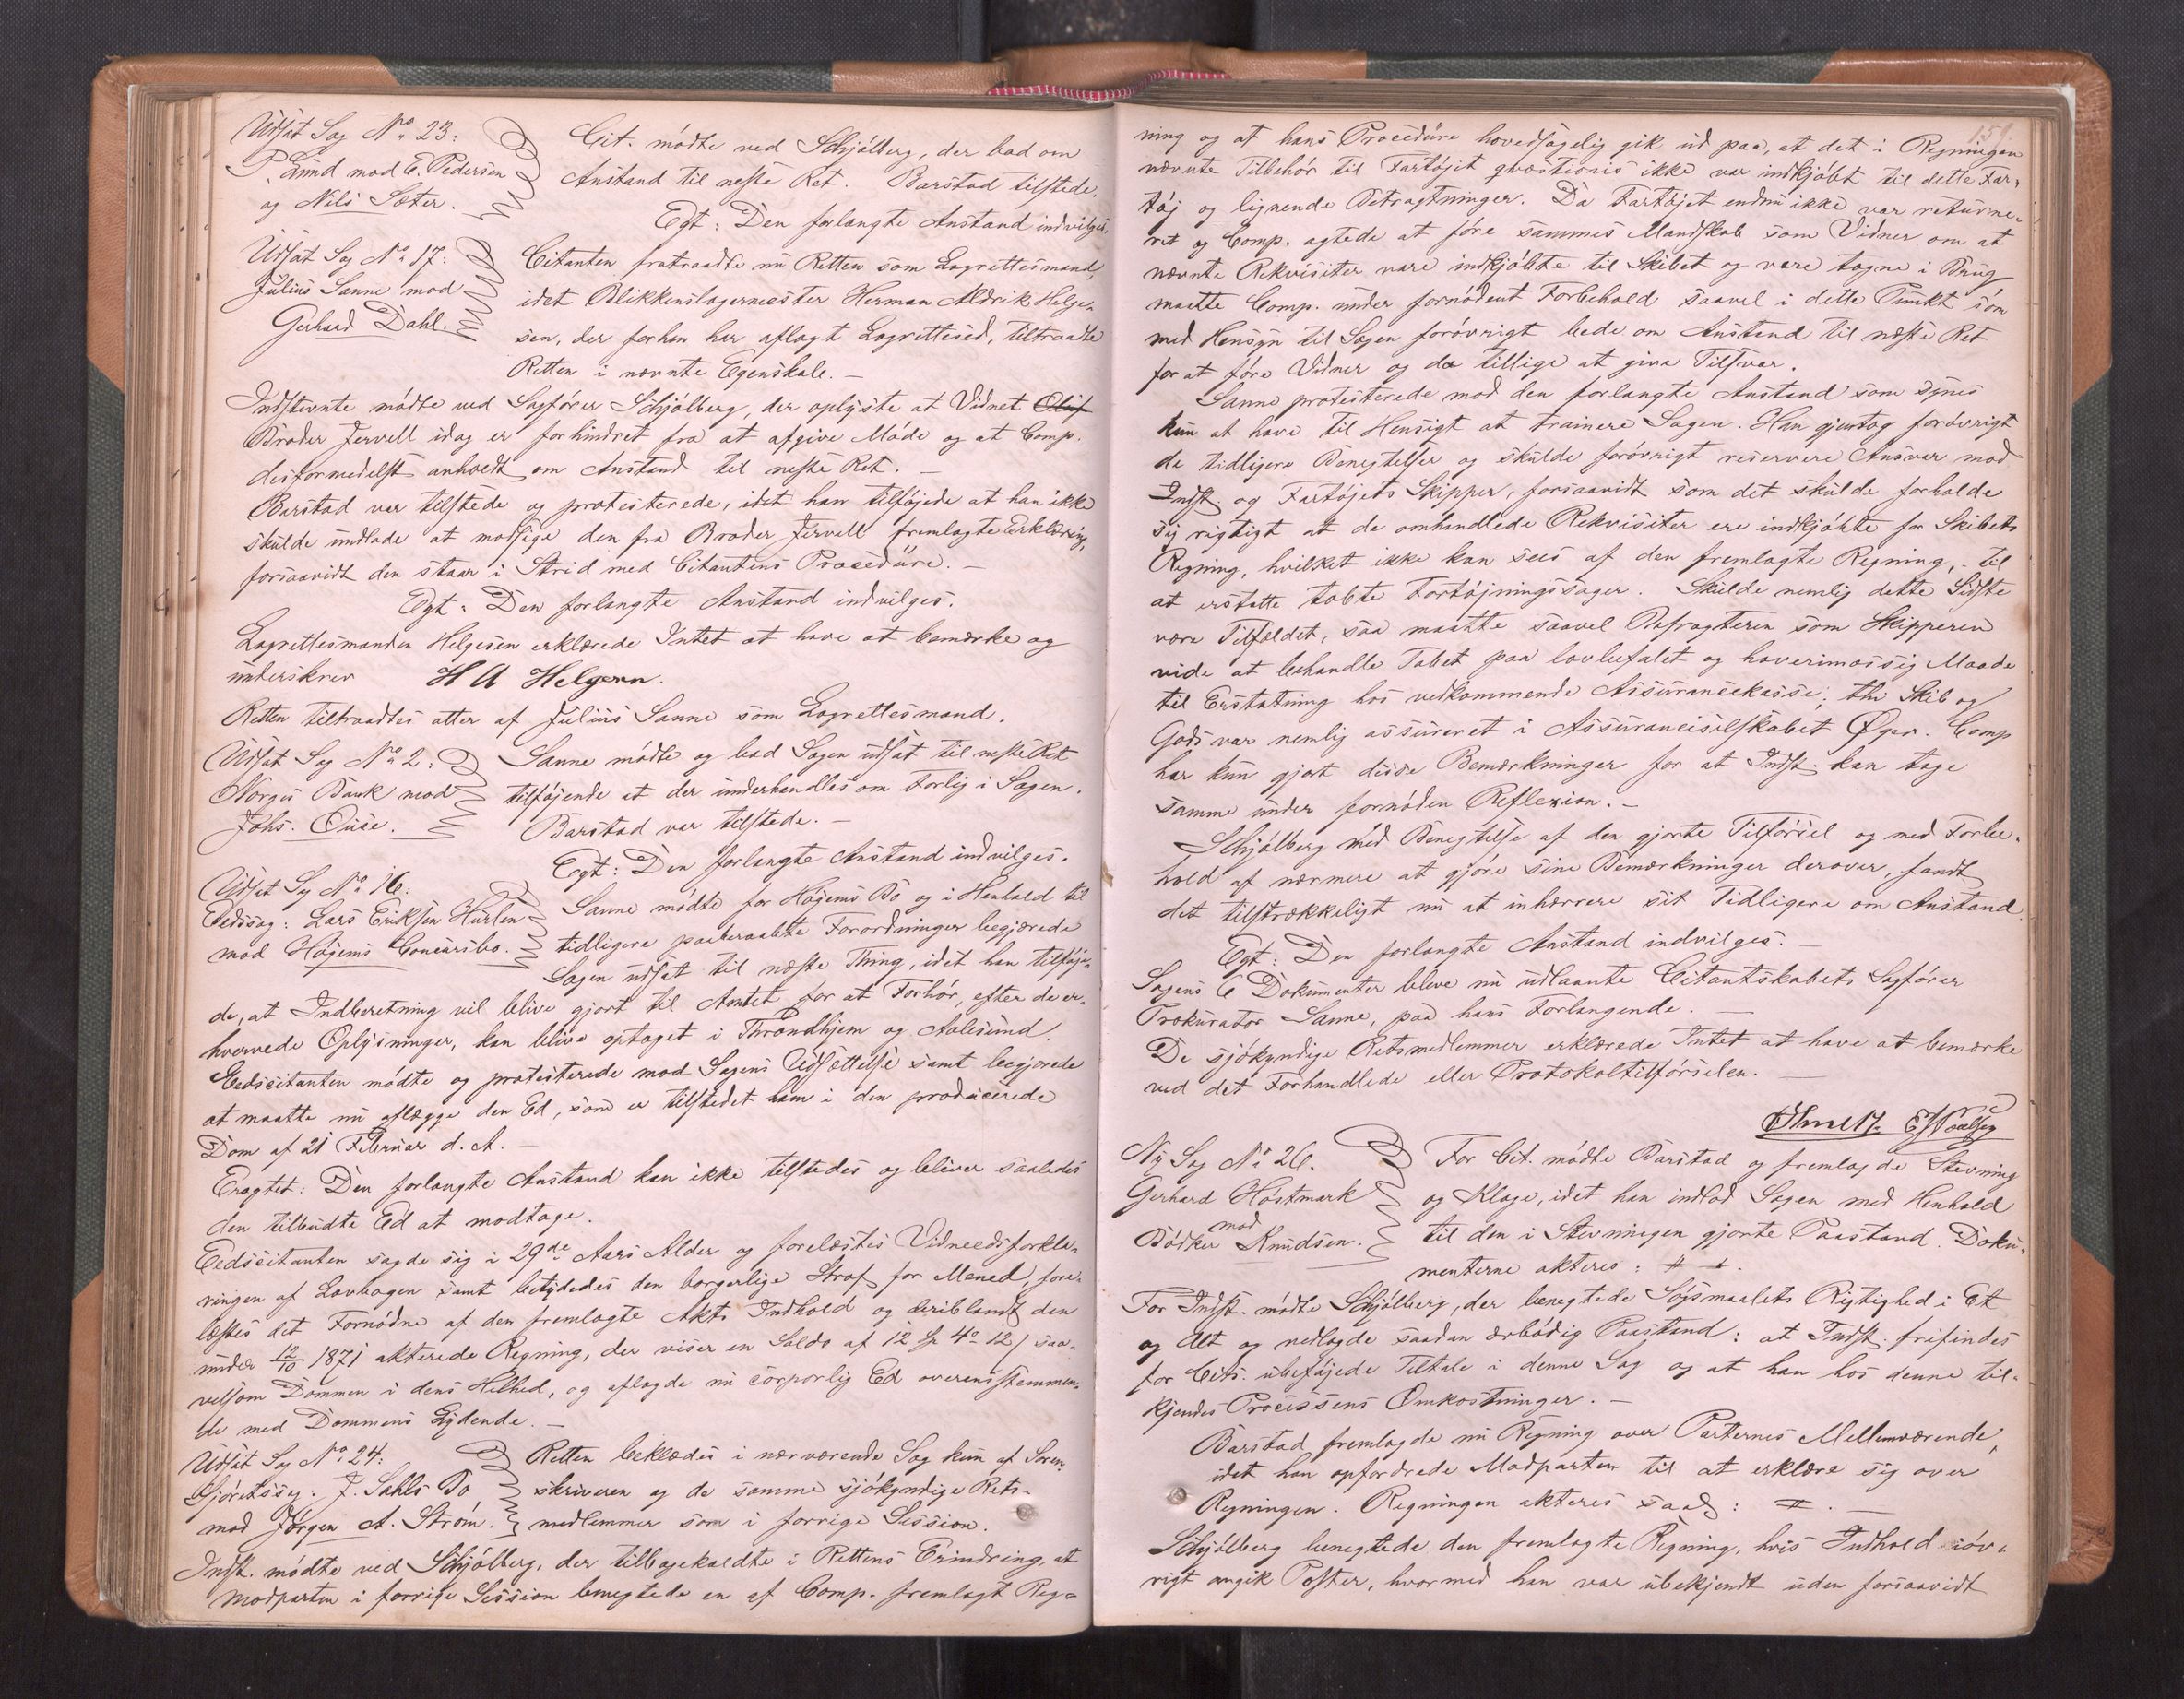 Udsat Sag No 23:
P. Lund mod E. Pedersen
og Nils Sæter.
Cit. mödte ved Schjölberg, der bad om
Anstand til neste Ret. Barstad tilstede.
Egt: Den forlangte Anstand indvilges.
Udsat Sag No 17:
Julius Sanne mod
Gerhard Dahl.
Citanten fratraadte nu Retten som Lagrettesmand,
idet Blikkenslagermester Herman Aldrik Helge-
sen, der forhen har aflagt Lagrettesed, tiltraadte
Retten i nævnte Egenskab. —
Indstevnte mödte ved Sagförer Schjölberg, der oplyste at Vidnet Oluf
Broder Jervell idag er forhindret fra at afgive Möde og at Comp.
desformedelst anholdt om Anstand til neste Ret. —
Barstad var tilstede og protesterede, idet han tilföjede at han ikke
skulde undlade at modsige den fra Broder Jervell fremlagte Erklæring,
forsaavidt den staar i Strid med Citantens Procedüre. —
Egt: Den forlangte Anstand indvilges.
Lagrettesmanden Helgesen erklærede Intet at have at bemærke og
underskrev H A Helgesen.
Retten tiltraadtes atter af Julius Sanne som Lagrettesmand.
Udsat Sag No 2:
Norges Bank mod
Johs. Ouse.
Sanne mödte og bad Sagen udsat til neste Ret
tilföjende at der underhandles om Forlig i Sagen.
Barstad var tilstede. —
Egt: Den forlangte Anstand indvilges.
Udsat Sag No 16:
Eedssag: Lars Eriksen Hurlen
mod Höyems Concursbo.
Sanne mödte for Höyems Bo og i Henhold til
tidligere paaberaabte Forordninger begjærede
Sagen udsat til næste Thing, idet han tilföje-
de, at Indberetning vil blive gjort til Amtet for at Forhör, efter de er-
hvervede Oplysninger, kan blive optaget i Throndhjem og Aalesund.
Eedscitanten mödte og protesterede mod Sagens Udsættelse samt begjærede
at maatte nu aflægge den Ed, som er tilstedet ham i den producerede
Dom af 21 Februar d. A. —
Eragtet: Den forlangte Anstand kan ikke tilstedes og bliver saaledes
den tilbudte Ed at modtage.
Eedscitanten sagde sig i 29de Aars Alder og forelæstes Vidneedsforkla-
ringen af Lovbogen samt betydedes den borgerlige Straf for Mened, fore-
læstes det Fornödne af den fremlagte Akts Indhold og deriblandt den
under 12/10 1871 akterede Regning, der viser en Saldo af 12 Sp 4o 12/ saa-
velsom Dommen i dens Helhed, og aflagde nu corporlig Ed overensstemmen-
de med Dommens Lydende. —
Udsat Sag No 24:
Sjöretssag: J. Sahls Bo
mod Jörgen A. Ström.
Retten beklædes i nærværende Sag kun af Soren-
skriveren og de samme sjökyndige Rets-
medlemmer som i forrige Session.
Indst. mödte ved Schjölberg, der tilbagekaldte i Rettens Erindring, at
Modparten i forrige Session benegtede en af Comp. fremlagt Reg-
151.
ning og at hans Procedüre hovedsagelig gik ud paa, at det i Regningen
nævnte Tilbehör til Fartöjet qvæstionis ikke var indkjöbt til dette Far-
töj og lignende Betragtninger. Da Fartöjet endnu ikke var returne-
ret og Comp. agtede at före sammes Mandskab som Vidner om at
nævnte Rekvisiter vare indkjöbte til Skibet og vare tagne i Brug
maatte Comp. under fornödent Forbehold saavel i dette Punkt som
med Hensyn til Sagen forövrigt bede om Anstand til næste Ret
for at före Vidner og da tillige at give Tilsvar.
Sanne protesterede mod den forlangte Anstand som synes
kun at have til Hensigt at trainere Sagen. Han gjentog forövrigt
de tidligere Benegtelser og skulde forövrigt reservere Ansvar mod
Indst. og Fartöjets Skipper, forsaavidt som det skulde forholde
sig rigtigt at de omhandlede Rekvisiter ere indkjöbte for Skibets
Regning, hvilket ikke kan sees af den fremlagte Regning, - til
at erstatte tabte Fortöjningssager. Skulde nemlig dette Sidste
være Tilfældet, saa maatte saavel Befragteren som Skipperen
vide at behandle Tabet paa lovbefalet og haverimæssig Maade
til Erstatning hos vedkommende Assurancekasse; thi Skib og
Gods var nemlig assureret i Assuranceselskabet Øger. Comp
har kun gjort disse Bemærkninger for at Indst. kan tage
samme under fornöden Reflexion. —
Schjölberg med Benegtelse af den gjorte Tilförsel og med Forbe-
hold af nærmere at gjöre sine Bemærkninger derover, fandt
det tilstrækkeligt nu at inhærere sit Tidligere om Anstand.
Egt: Den forlangte Anstand indvilges. —
Sagens 6 Dokumenter bleve nu udlaante Citantskabets Sagförer
Prokurator Sanne, paa hans Forlangende. —
De sjökyndige Retsmedlemmer erklærede Intet at have at bemærke
ved det Forhandlede eller Protokoltilförselen. —
Ny Sag No 26.
Gerhard Hostmark
mod
Bödker Knudsen.
For Cit. mödte Barstad og fremlagde Stevning
og Klage, idet han indlod Sagen med Henhold
til den i Stevningen gjorte Paastand. Doku-
menterne akteres: # #.
For Indst. mödte Schjölberg, der benegtede Sögsmaalets Rigtighed i Et
og Alt og nedlagde saadan ærbödig Paastand: at Indst. frifindes
for Cits. ubeföjede Tiltale i denne Sag og at han hos denne til-
kjendes Processens Omkostninger. —
Barstad fremlagde nu Regning over Parternes Mellemværende,
idet han opfordrede Modparten til at erklære sig over
Regningen. Regningen akteres saal: #. —
Schjölberg benegtede den fremlagte Regning, hvis Indhold iöv-
rigt angik Poster, hvormed han var ubekjendt uden forsaavidt